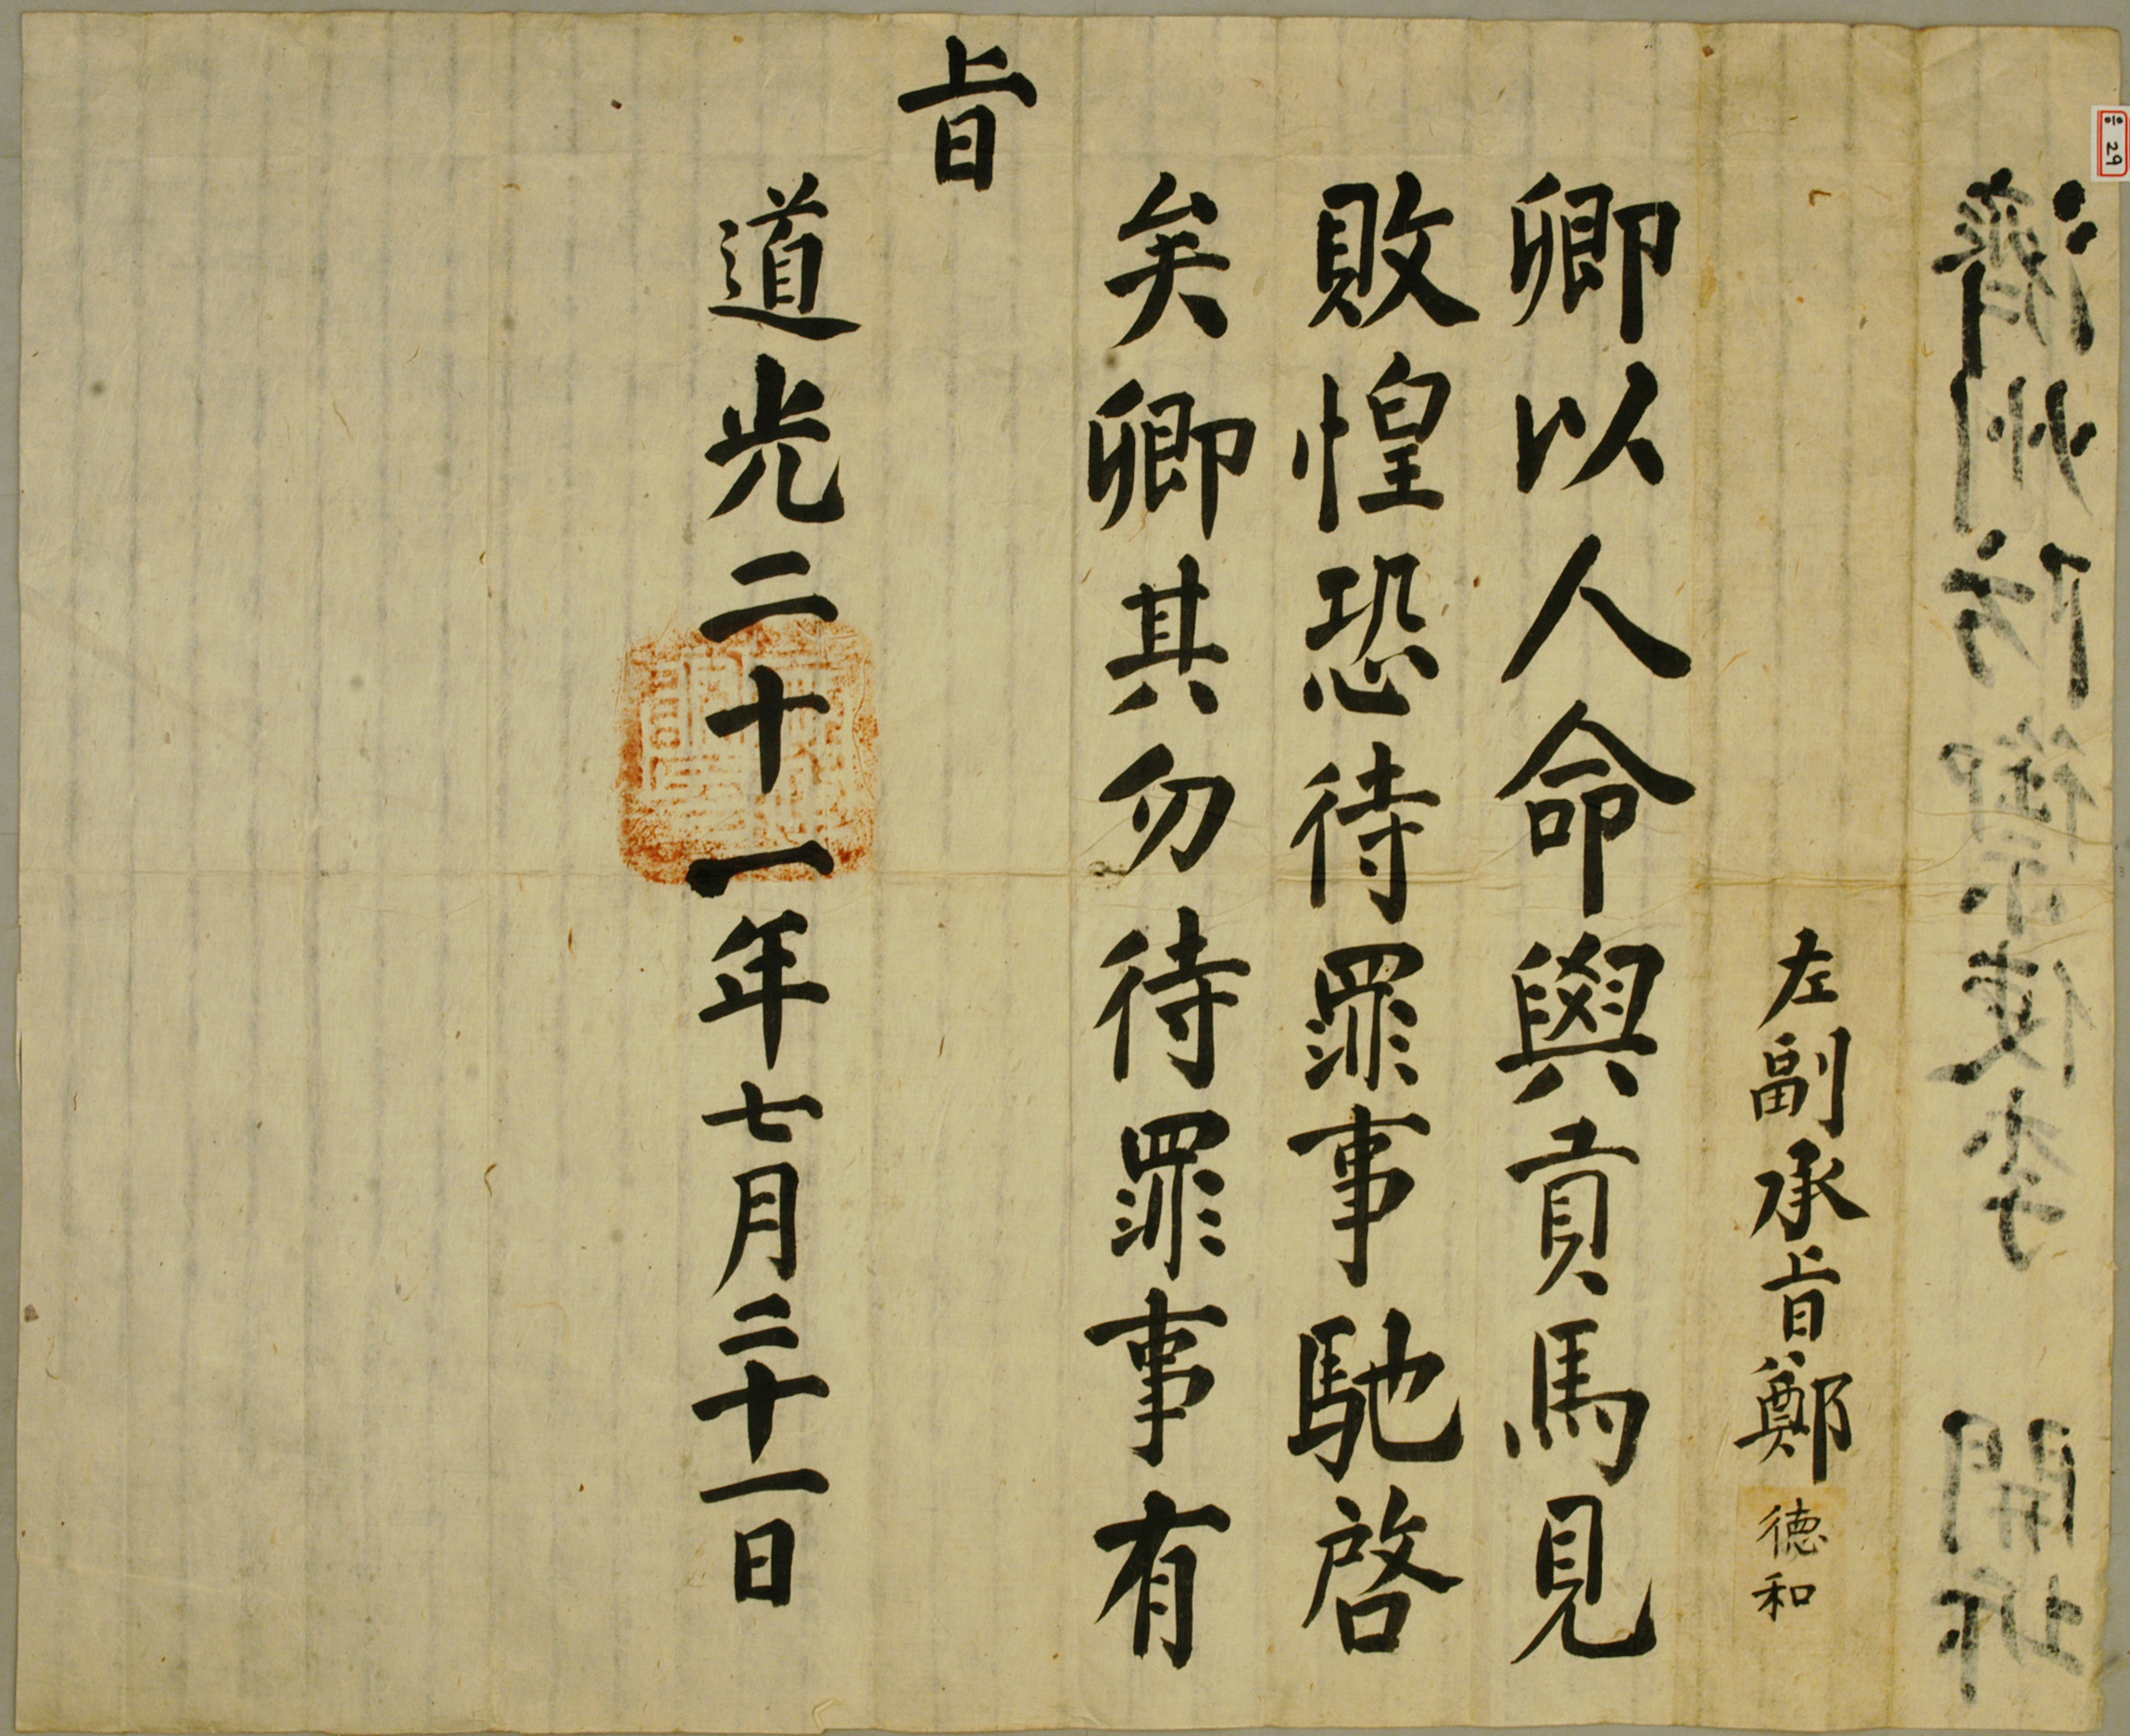 濟州防禦使李 開坼
左副承旨鄭 德和
卿以人命與貢馬見
敗惶恐待罪事馳啓
矣卿其勿待罪事有
旨
道光二十一年七月二十一日
29